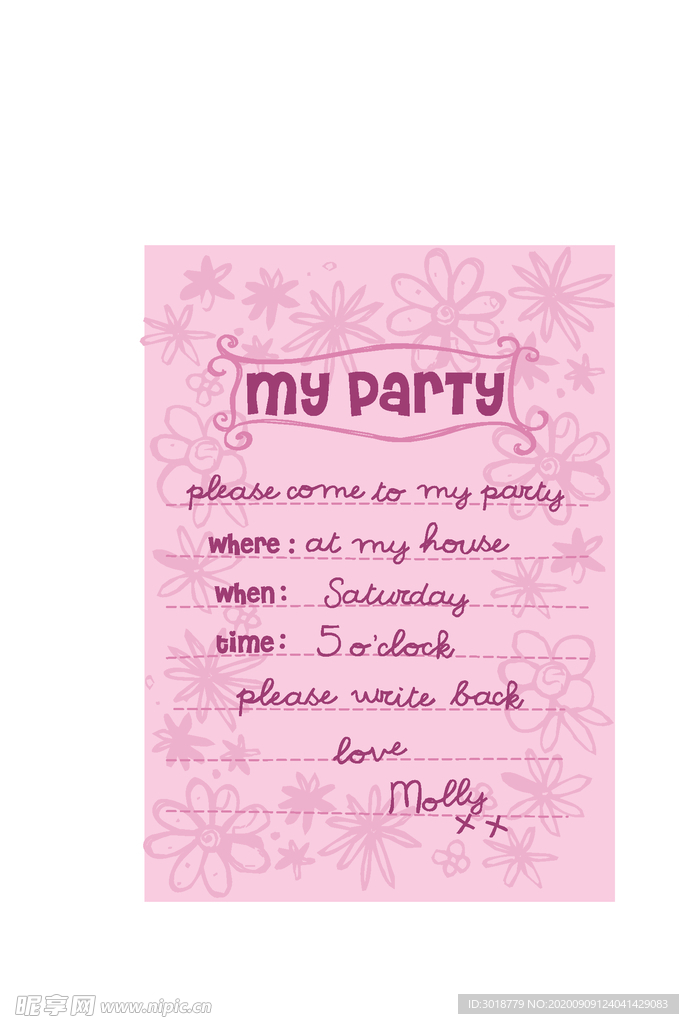 my party
please come to my party
where: at my house
when: Saturday
time: 5 o'clock
please write back
love
Molly
x x
昵享网 www.nipic.cn
ID:3018779 NO:20200909124041429083